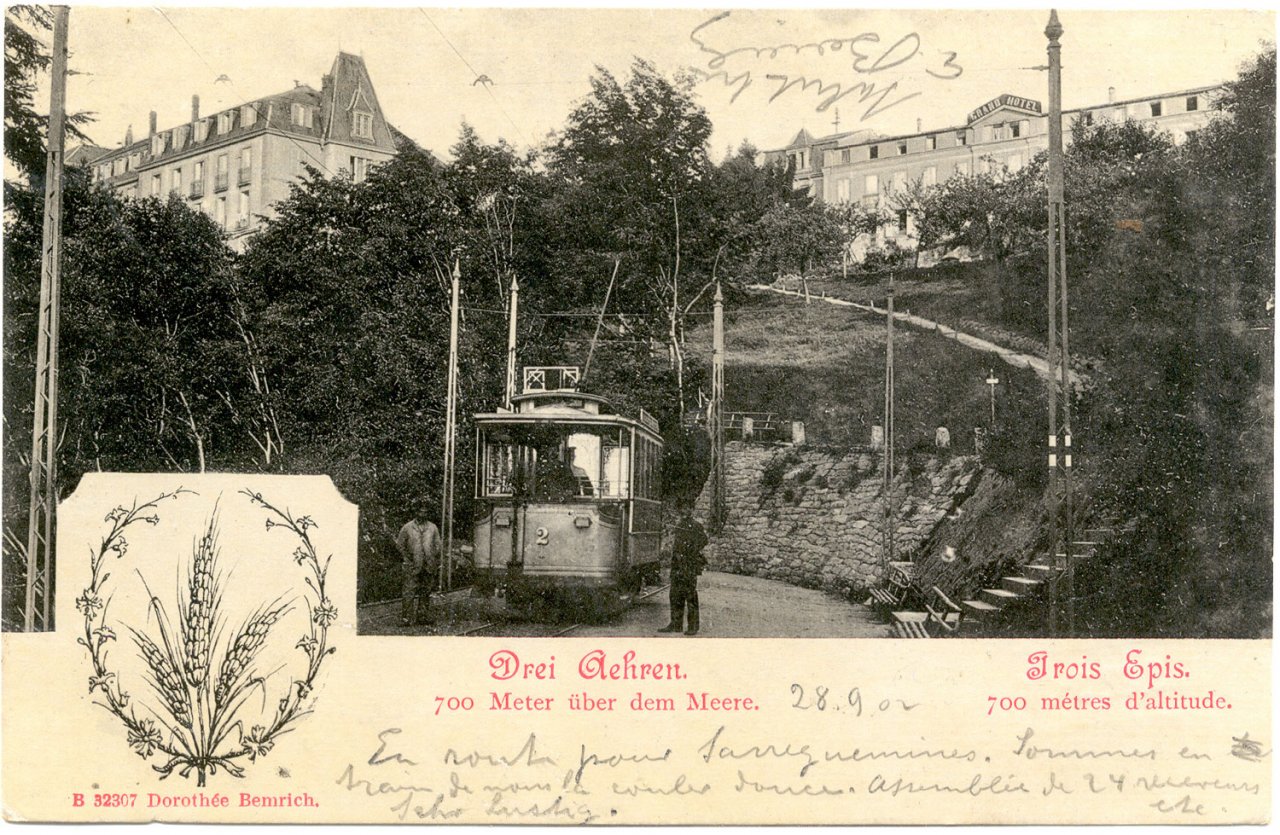 GRAND HOTEL
2
Drei Aehren.
700 Meter über dem Meere.
28.9 02
Trois Epis.
700 métres d'altitude.
En rout pour Sarreguemines. Sommes en
train de nous la couler douce. Assemblée de 24 receveurs
etc.
Sehr lustig.
B 32307 Dorothée Bemrich.